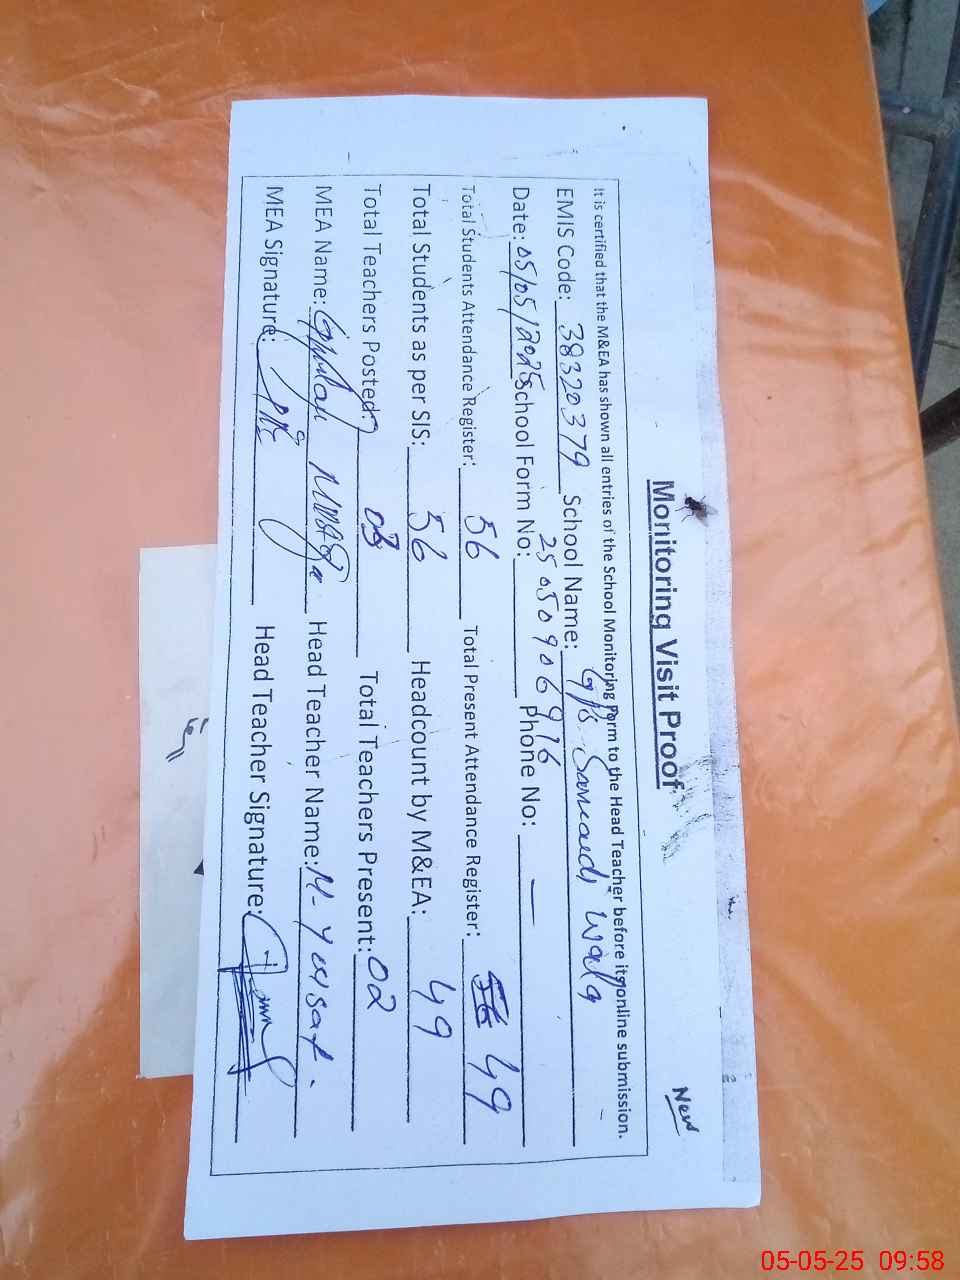 New
Monitoring Visit Proof
It is certified that the M&EA has shown all entries of the School Monitoring Form to the Head Teacher before its online submission.
EMIS Code: 38320379 School Name: G/s Sanwali Wala
Date: 05/05/2025 School Form No: 25050906916 Phone No: —
Total Students Attendance Register: 56 Total Present Attendance Register: 49
Total Students as per SIS: 56 Headcount by M&EA: 49
Total Teachers Posted: 03 Total Teachers Present: 02
MEA Name: Head Teacher Name: M. Yousaf.
MEA Signature: Head Teacher Signature:
05-05-25 09:58